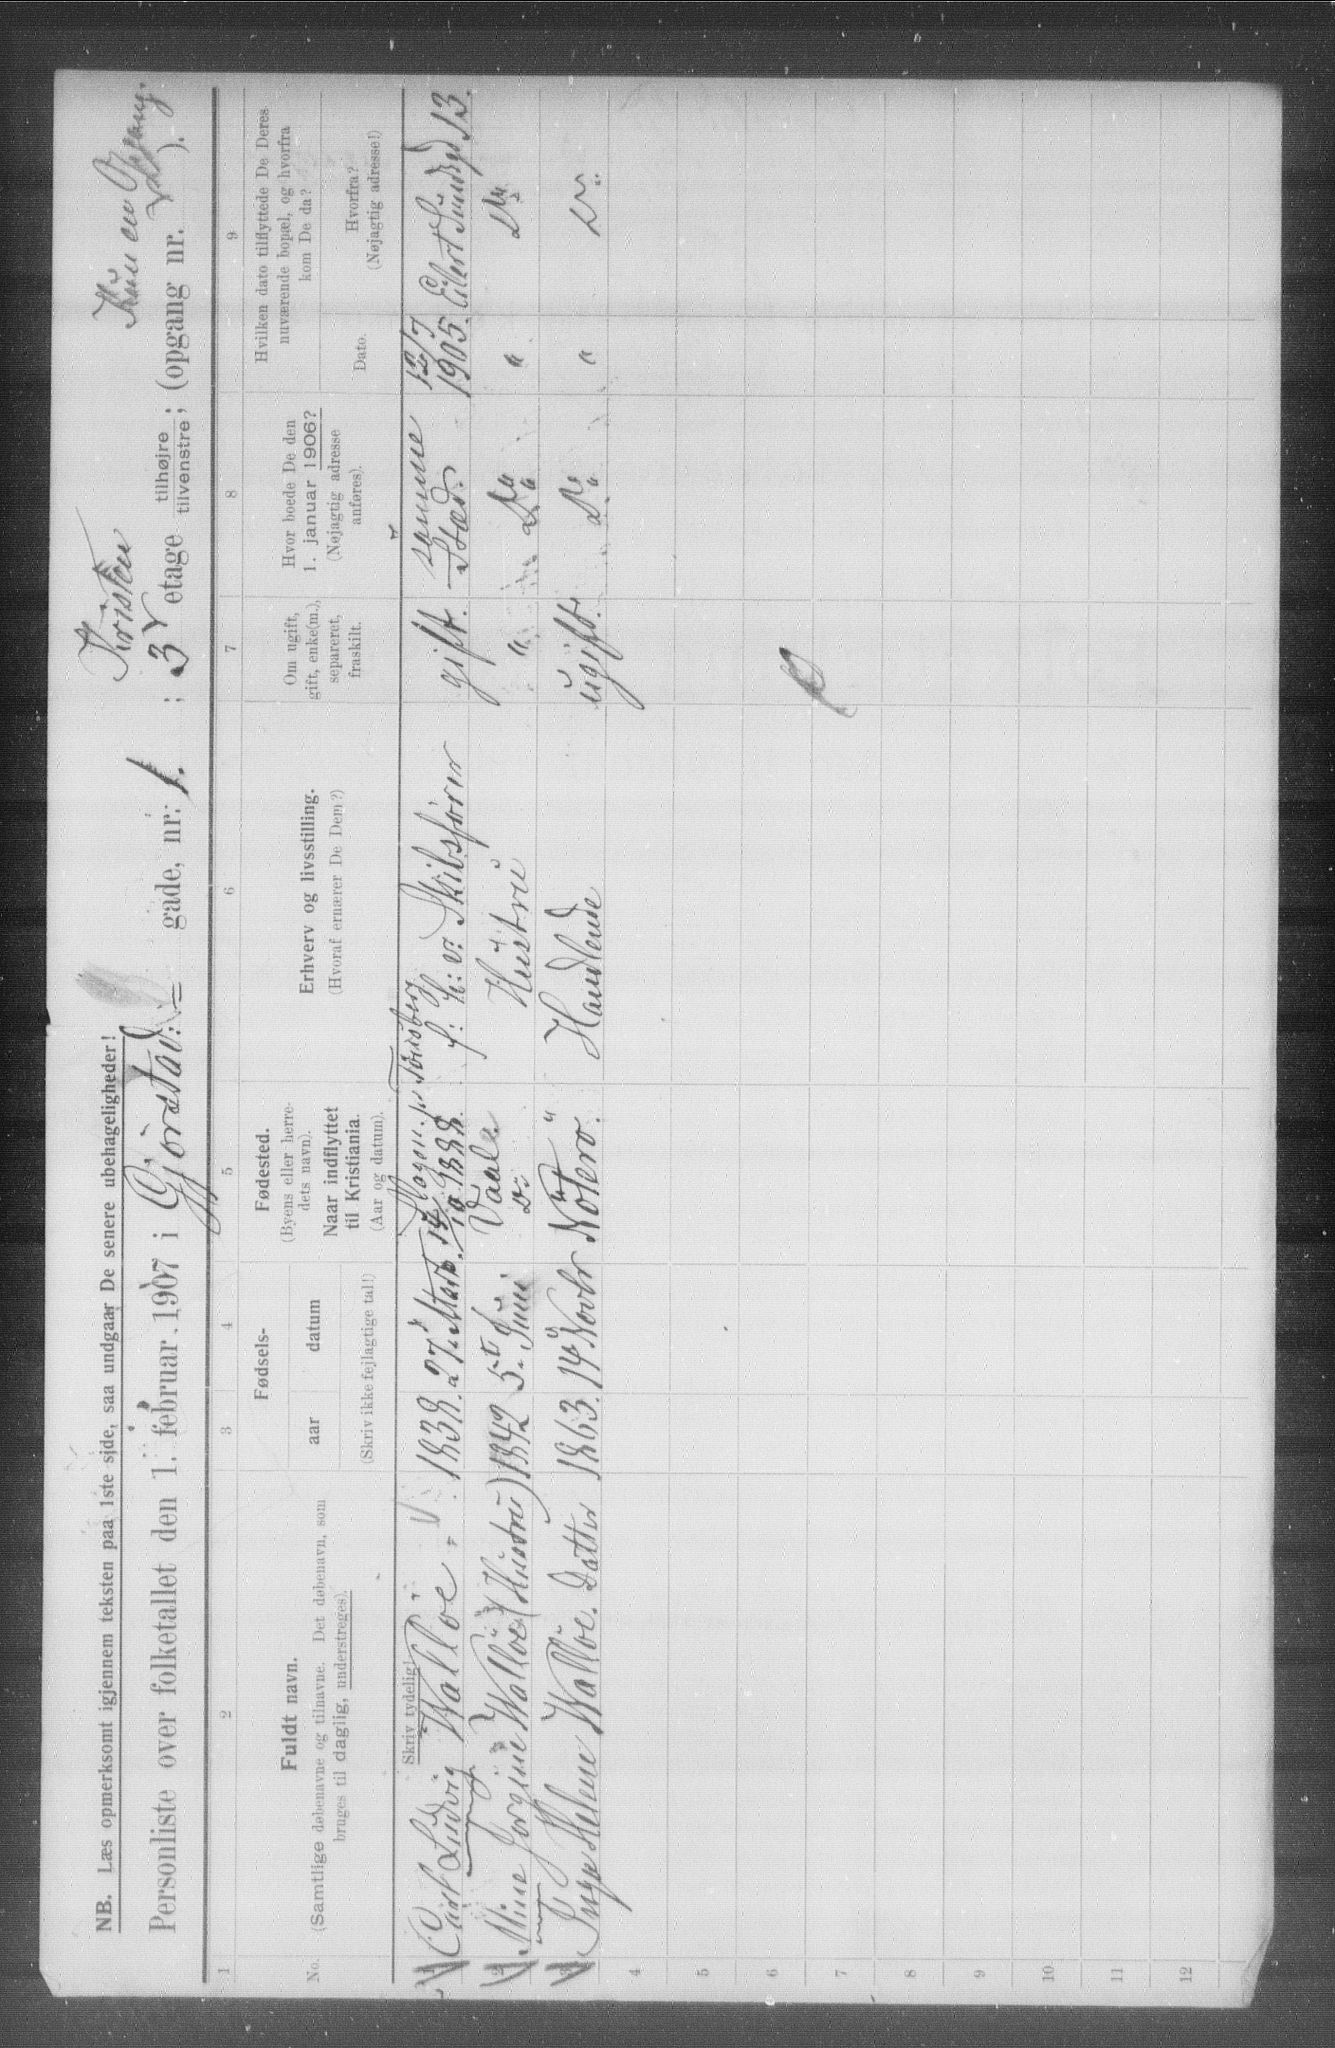 NB. Læs opmerksomt igjennem teksten paa 1ste side, saa undgaar De senere ubehageligheder!
Kristen
Kun en Opgang.
Personliste over folketallet den 1. februar 1907 i Gjørstad: gade, nr. 1. ; 3 etage tilhøjre tilvenstre ; (opgang nr. ).
1 2 3 4 5 6 7 8 9
No.
Fuldt navn.
(Samtlige døbenavne og tilnavne. Det døbenavn, som
bruges til daglig, understreges).
Fødsels-
aar datum
(Skriv ikke fejlagtige tal!)
Fødested.
(Byens eller herre-
dets navn).
Naar indflyttet
til Kristiania.
(Aar og datum).
Erhverv og livsstilling.
(Hvoraf ernærer De Dem?)
Om ugift,
gift, enke(m.),
separeret,
fraskilt.
Hvor boede De den
1. januar 1906?
(Nøjagtig adresse
anføres).
Hvilken dato tilflyttede De Deres
nuværende bopæl, og hvorfra
kom De da?
Dato.
Hvorfra?
(Nøjagtig adresse!)
Skriv tydelig!
1 Carl Ludvig Walløe 1838. 27 Marts. Slagen pr Tønsberg 14/10 1888. f: h: v: Skibsfører gift. samme Sted. 12/7 1905. Eilert Sundsgd 13.
2 Mine Jorgine Walløe (Hustru) 1842 5t Juni Vaale Do Hustru " Do " Do
3 Inga Helene Walløe. Datter 1863. 14 Novbr Nøterø. " Handlende ugift. Do " Do
4
5
6
7
8
9
10
11
12